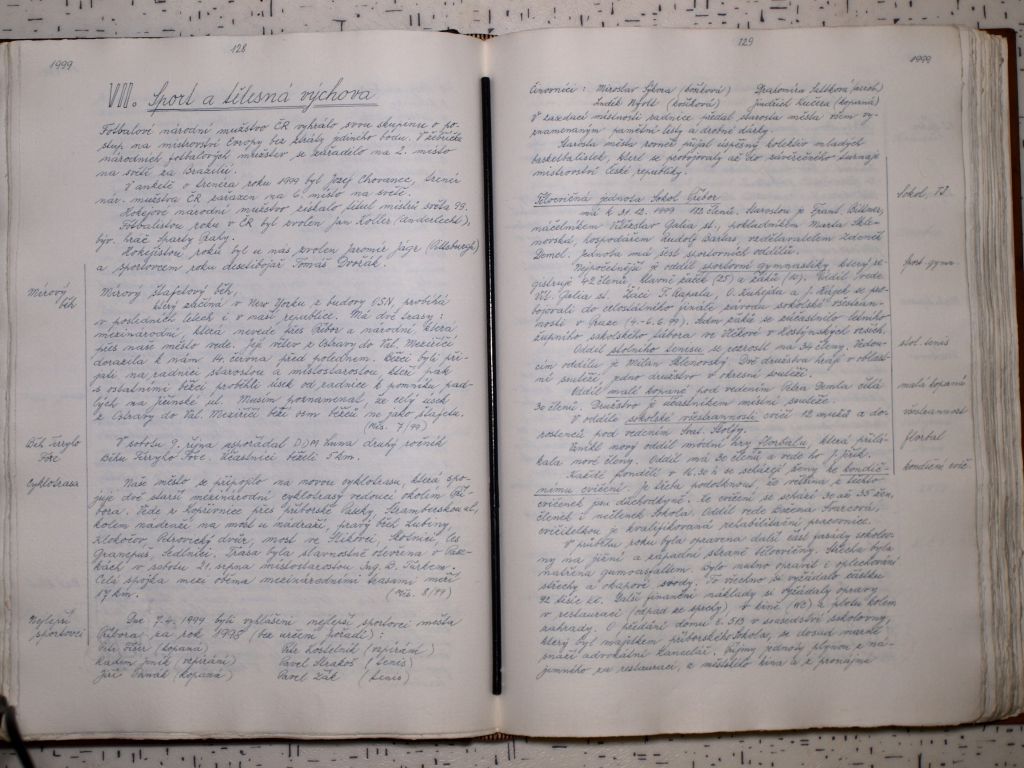 128
1999
VII. Sport a tělesná výchova
Fotbalové národní mužstvo ČR vyhrálo svou skupinu o po-
stup na mistrovství Evropy bez ztráty jediného bodu. V žebříčku
národních fotbalových mužstev se zařadilo na 2. místo
na světě za Brazílii.
V anketě o trenéra roku 1999 byl Jozef Chovanec, trenér
nár. mužstva ČR zařazen na 6. místo na světě.
Hokejové národní mužstvo získalo titul mistrů světa 99.
Fotbalistou roku v ČR byl zvolen Jan Koller (Anderlecht),
býv. hráč Sparty Prahy.
Hokejistou roku byl u nás zvolen Jaromír Jágr (Pittsburgh)
a sportovcem roku desetibojař Tomáš Dvořák.
Mírový
běh
Mírový štafetový běh,
který začíná v New Yorku z budovy OSN, probíhá
v posledních letech i v naší republice. Má dvě trasy:
mezinárodní, která nevede přes Příbor a národní, která
přes naše město vede. Její větev z Ostravy do Val. Meziříčí
dorazila k nám 14. června před polednem. Běžci byli při-
jati na radnici starostou a místostarostou, kteří pak
s ostatními běžci proběhli úsek od radnice k pomníku pad-
lých na Jičínské ul. Musím poznamenat, že celý úsek
z Ostravy do Val. Meziříčí běží osm běžců ne jako štafetu.
(Měs. 7/99)
Běh Terryho
Foxe
V sobotu 9. října uspořádal DDM Luna druhý ročník
Běhu Terryho Foxe. Účastníci běželi 5 km.
Cyklotrasa
Naše město se připojilo na novou cyklotrasu, která spo-
juje dvě starší mezinárodní cyklotrasy vedoucí okolím Pří-
bora. Vede z Kopřivnice přes Příborské Paseky, Štramberskou ul,
kolem nádraží na most u nádraží, pravý břeh Lubiny,
Klokočov, Petrovický dvůr, most ve Skikovci, Skotnici, les
Grampus, Sedlnici. Trasa byla slavnostně otevřena v Pase-
kách v sobotu 21. srpna místostarostou Ing. D. Turkem.
Celá spojka mezi oběma mezinárodními trasami měří
17 km. (Měs. 8/99)
Nejlepší
sportovci
Dne 9.4. 1999 byli vyhlášeni nejlepší sportovci města
Příbora za rok 1998 (bez určení pořadí):
Petr (kopaná) Petr Kostelník (vzpírání)
Radim (vzpírání) Pavel Strakoš (tenis)
Jiří (kopaná) Pavel Žák (tenis)
129
1999
Činovníci: Miroslav Sýkora (košíková) Drahomíra
Luděk (košíková) Jindřich Kučera (kopaná)
V zasedací místnosti radnice předal starosta města všem vy-
znamenaným pamětní listy a drobné dárky.
Starosta města rovněž přijal úspěšný kolektiv mladých
basketbalistek, které se probojovaly až do závěrečného turnaje
mistrovství České republiky.
Sokol, TJ.
Tělocvičná jednota Sokol Příbor
má k 31.12. 1999 182 členů. Starostou je Frant. Bittner,
náčelníkem Vítězslav Galia st., pokladníkem Marta Skle-
novská, hospodářem Rudolf Bartas, vzdělavatelem Zdeněk
Deml. Jednota má šest sportovních oddílů.
sport. gymn.
Nejpočetnější je oddíl sportovní gymnastiky, který re-
gistruje 42 členů, hlavně žaček (25) a žáků (12). Oddíl vede
Vít. Galia st. Žáci T. Kapala, O. Zubejda a J. Hájek se pro-
bojovali do celostátního finále závodu sokolské všestran-
nosti v Praze (4.-6.6. 99). Sedm žáků se zúčastnilo letního
župního sokolského tábora ve Vlčkové v Hostýnských vrších.
stol. tenis
Oddíl stolního tenisu se rozrostl na 34 členy. Vedou-
cím oddílu je Milan Sklenovský. Dvě družstva hrají v oblast-
ní soutěži, jedno družstvo v okresní soutěži.
malá kopaná
Oddíl malé kopané pod vedením Petra Demla čítá
30 členů. Družstvo je účastníkem městní soutěže.
všestrannost
V oddíle sokolské všestrannosti cvičí 12 mužů a do-
rostenců pod vedením Frant.
florbal
Vznikl nový oddíl módní hry florbalu, která přilá-
kala nové členy. Oddíl má 30 členů a vede ho J.
kondiční cvič.
Každé pondělí v 16.30 h se scházejí ženy ke kondič-
nímu cvičení. Je třeba podotknout, že většina z těchto
cvičenek jsou důchodkyně. Ke cvičení se schází 30 až 35 žen,
členek i nečlenek Sokola. Oddíl vede Božena Švarcová,
cvičitelkou je kvalifikovaná rehabilitační pracovnice.
V průběhu roku byla opravena další část fasády sokolov-
ny na jižní a západní straně tělocvičny. Střecha byla
natřena gumoasfaltem. Bylo nutno opravit i oplechování
střechy a okapové svody. To všechno si vyžádalo částku
92 tisíc Kč. Další finanční náklady si vyžádaly opravy
v restauraci (odpad ze sprchy) v kině (WC) a plotu kolem
zahrady. O předání domu č. 513 v sousedství sokolovny,
který byl majetkem příborského Sokola, se dosud vleklé
snaží advokátní kancelář. Příjmy jednoty plynou z ná-
jemného za restauraci, z městského kina a z pronájmu